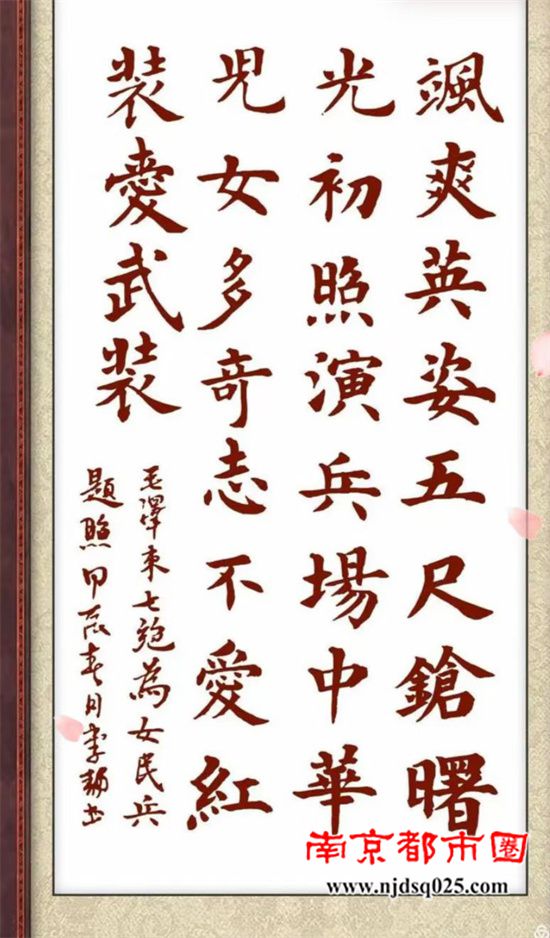 颯爽英姿五尺鎗曙
光初照演兵場中華
兒女多奇志不愛紅
裝愛武裝
毛澤東七絕為女民兵
題照甲辰春月李書
南京都市圈
www.njdsq025.com